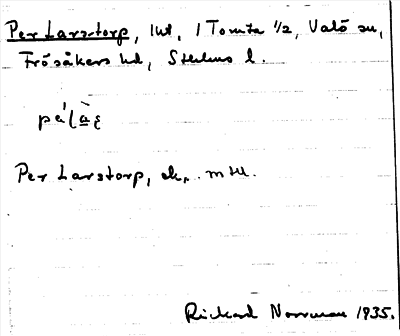 Per Larstorp, 1hl, 1 Tomta 1/2, Valö sn,
Frösåkers hd, Sthlms l.
Per Larstorp, ek,. mtl.
Rickard Norrman 1935.